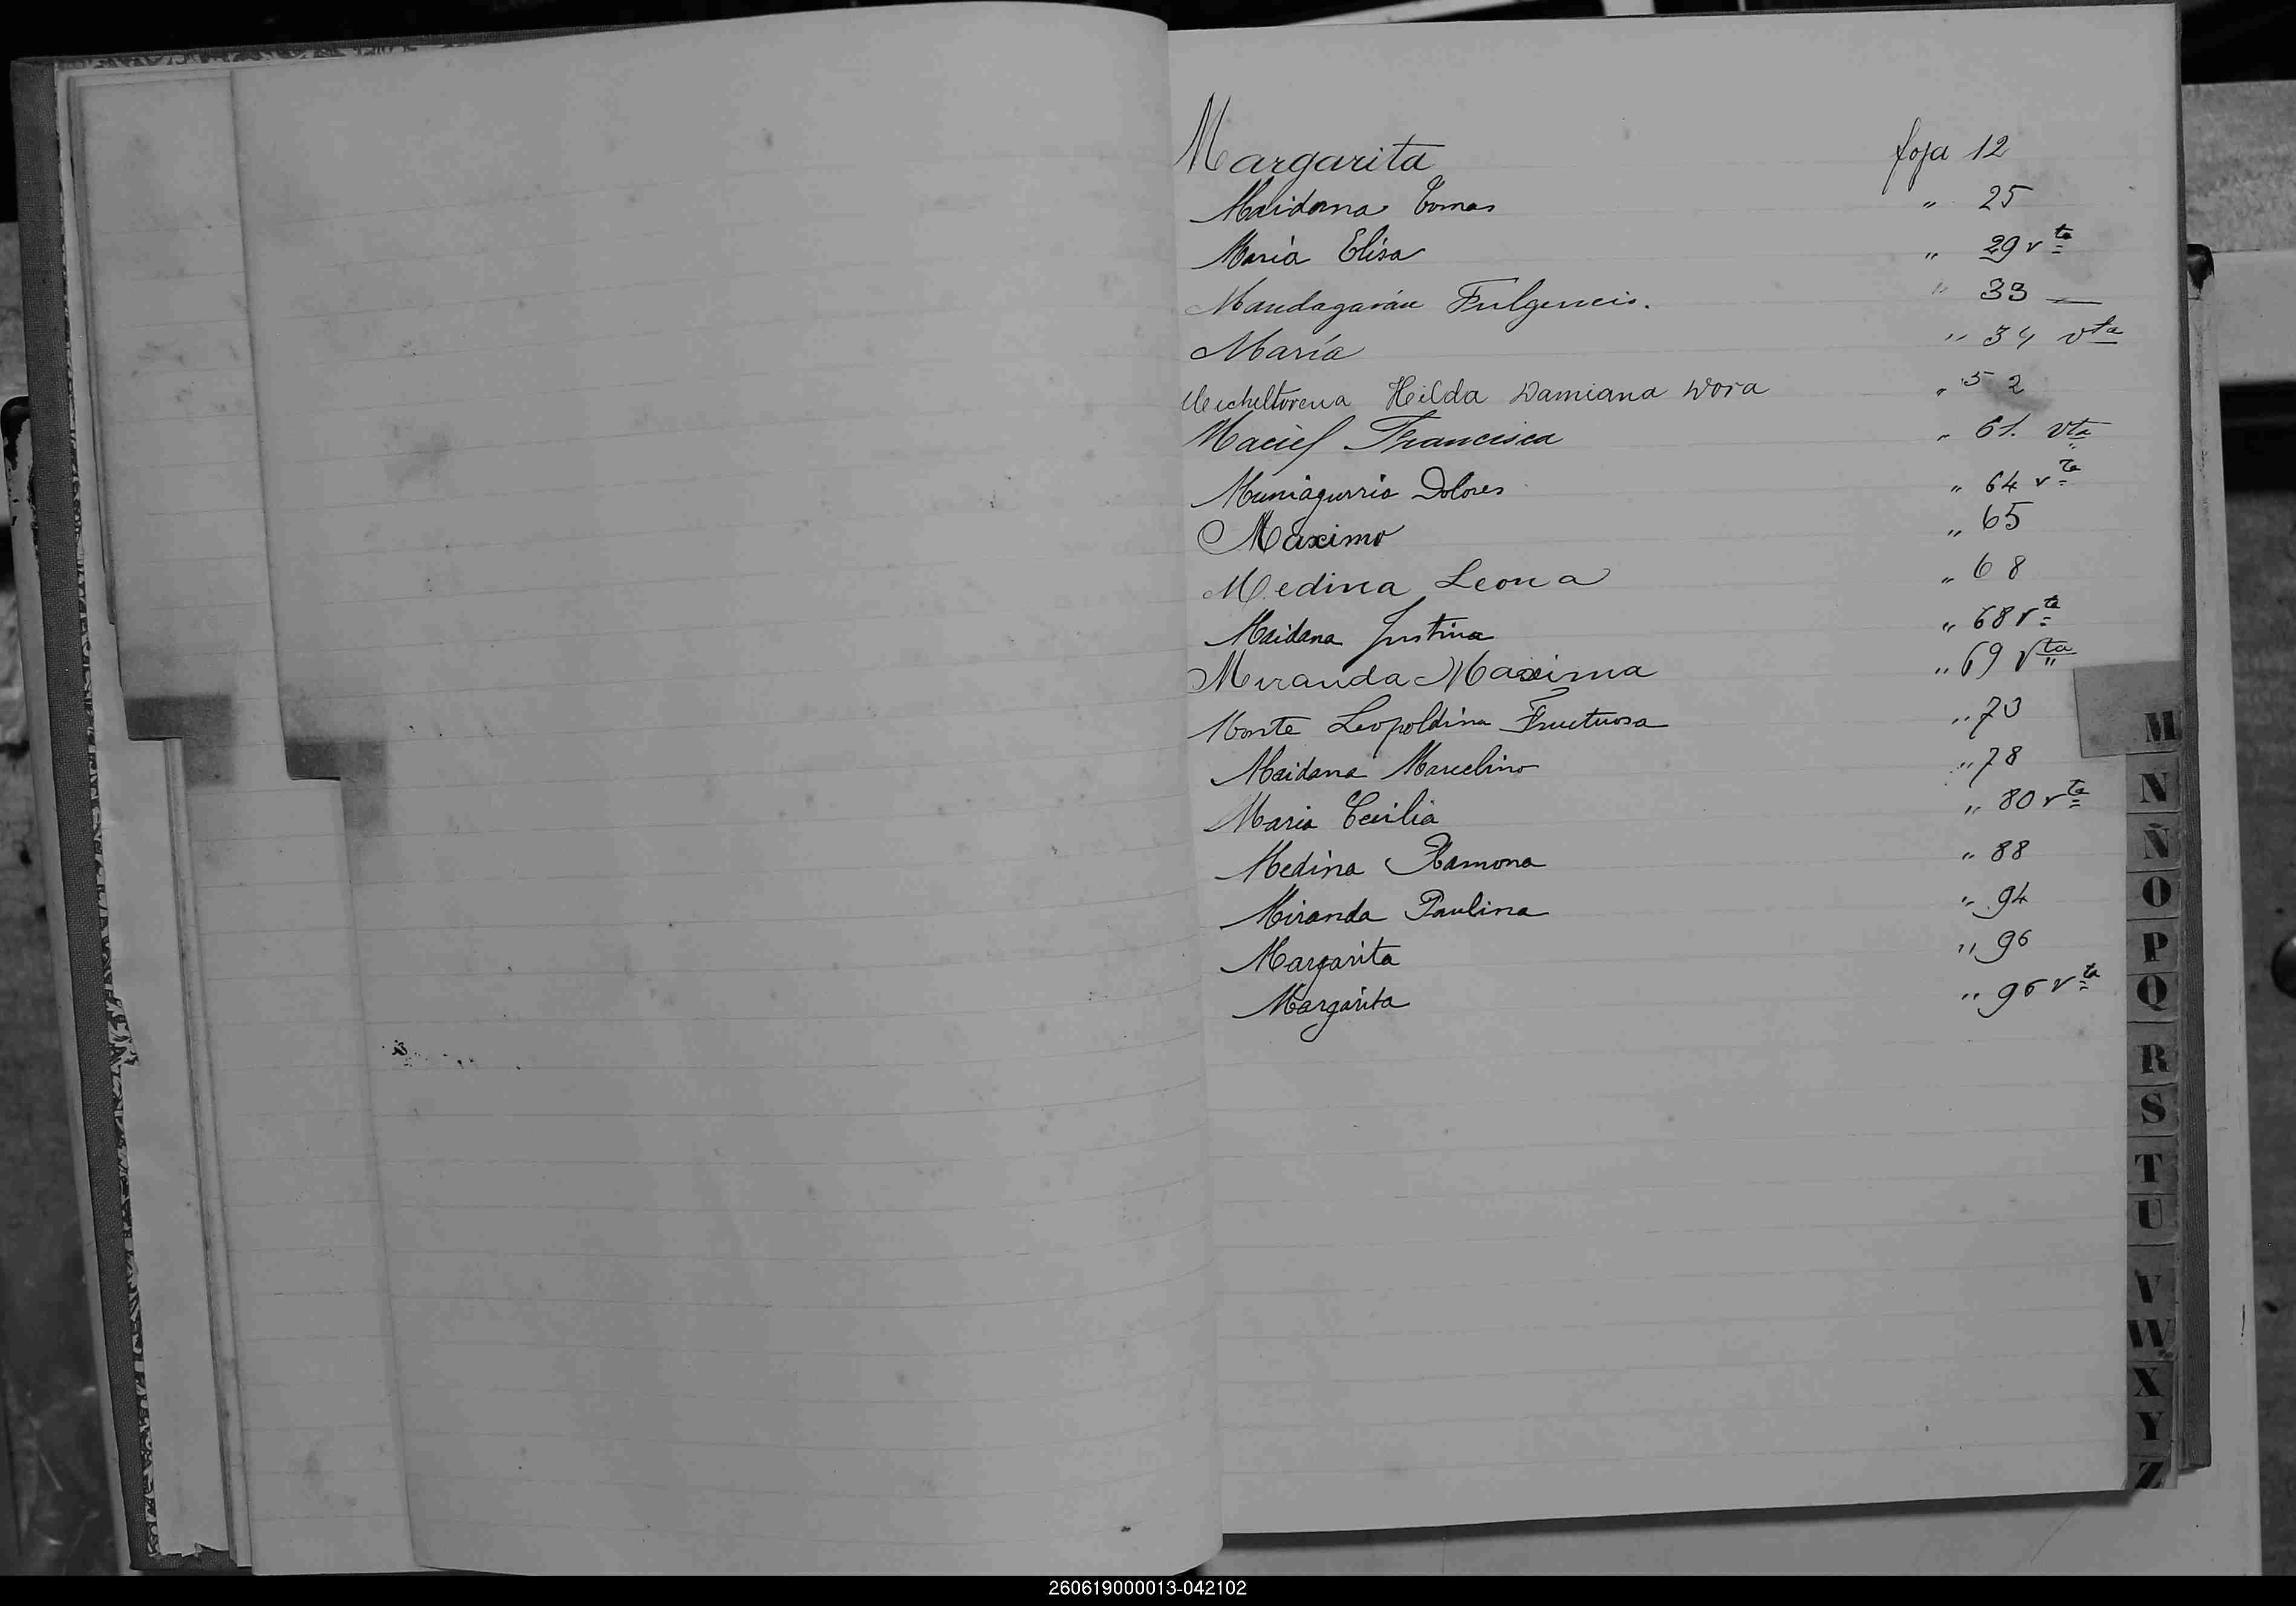 Margarita foja 12
Maidana Tomas " 25
María Elisa " 29 vta
Mandagarán Fulgencio. " 33 —
María " 34 vta
Micheltorena Hilda Damiana Dora " 52
Maciel Francisca " 61. vta
Muniagurria Dolores " 64 vta
Máximo " 65
Medina Leona " 68
Maidana Justina " 68 vta
Miranda Maxima " 69 vta
Monte Leopoldina Fructuosa " 73
Maidana Marcelino " 78
Maria Cecilia " 80 vta
Medina Ramona " 88
Miranda Paulina " 94
Margarita " 96
Margarita " 96 vta
M
N
Ñ
O
P
Q
R
S
T
U
V
W
X
Y
Z
260619000013-042102